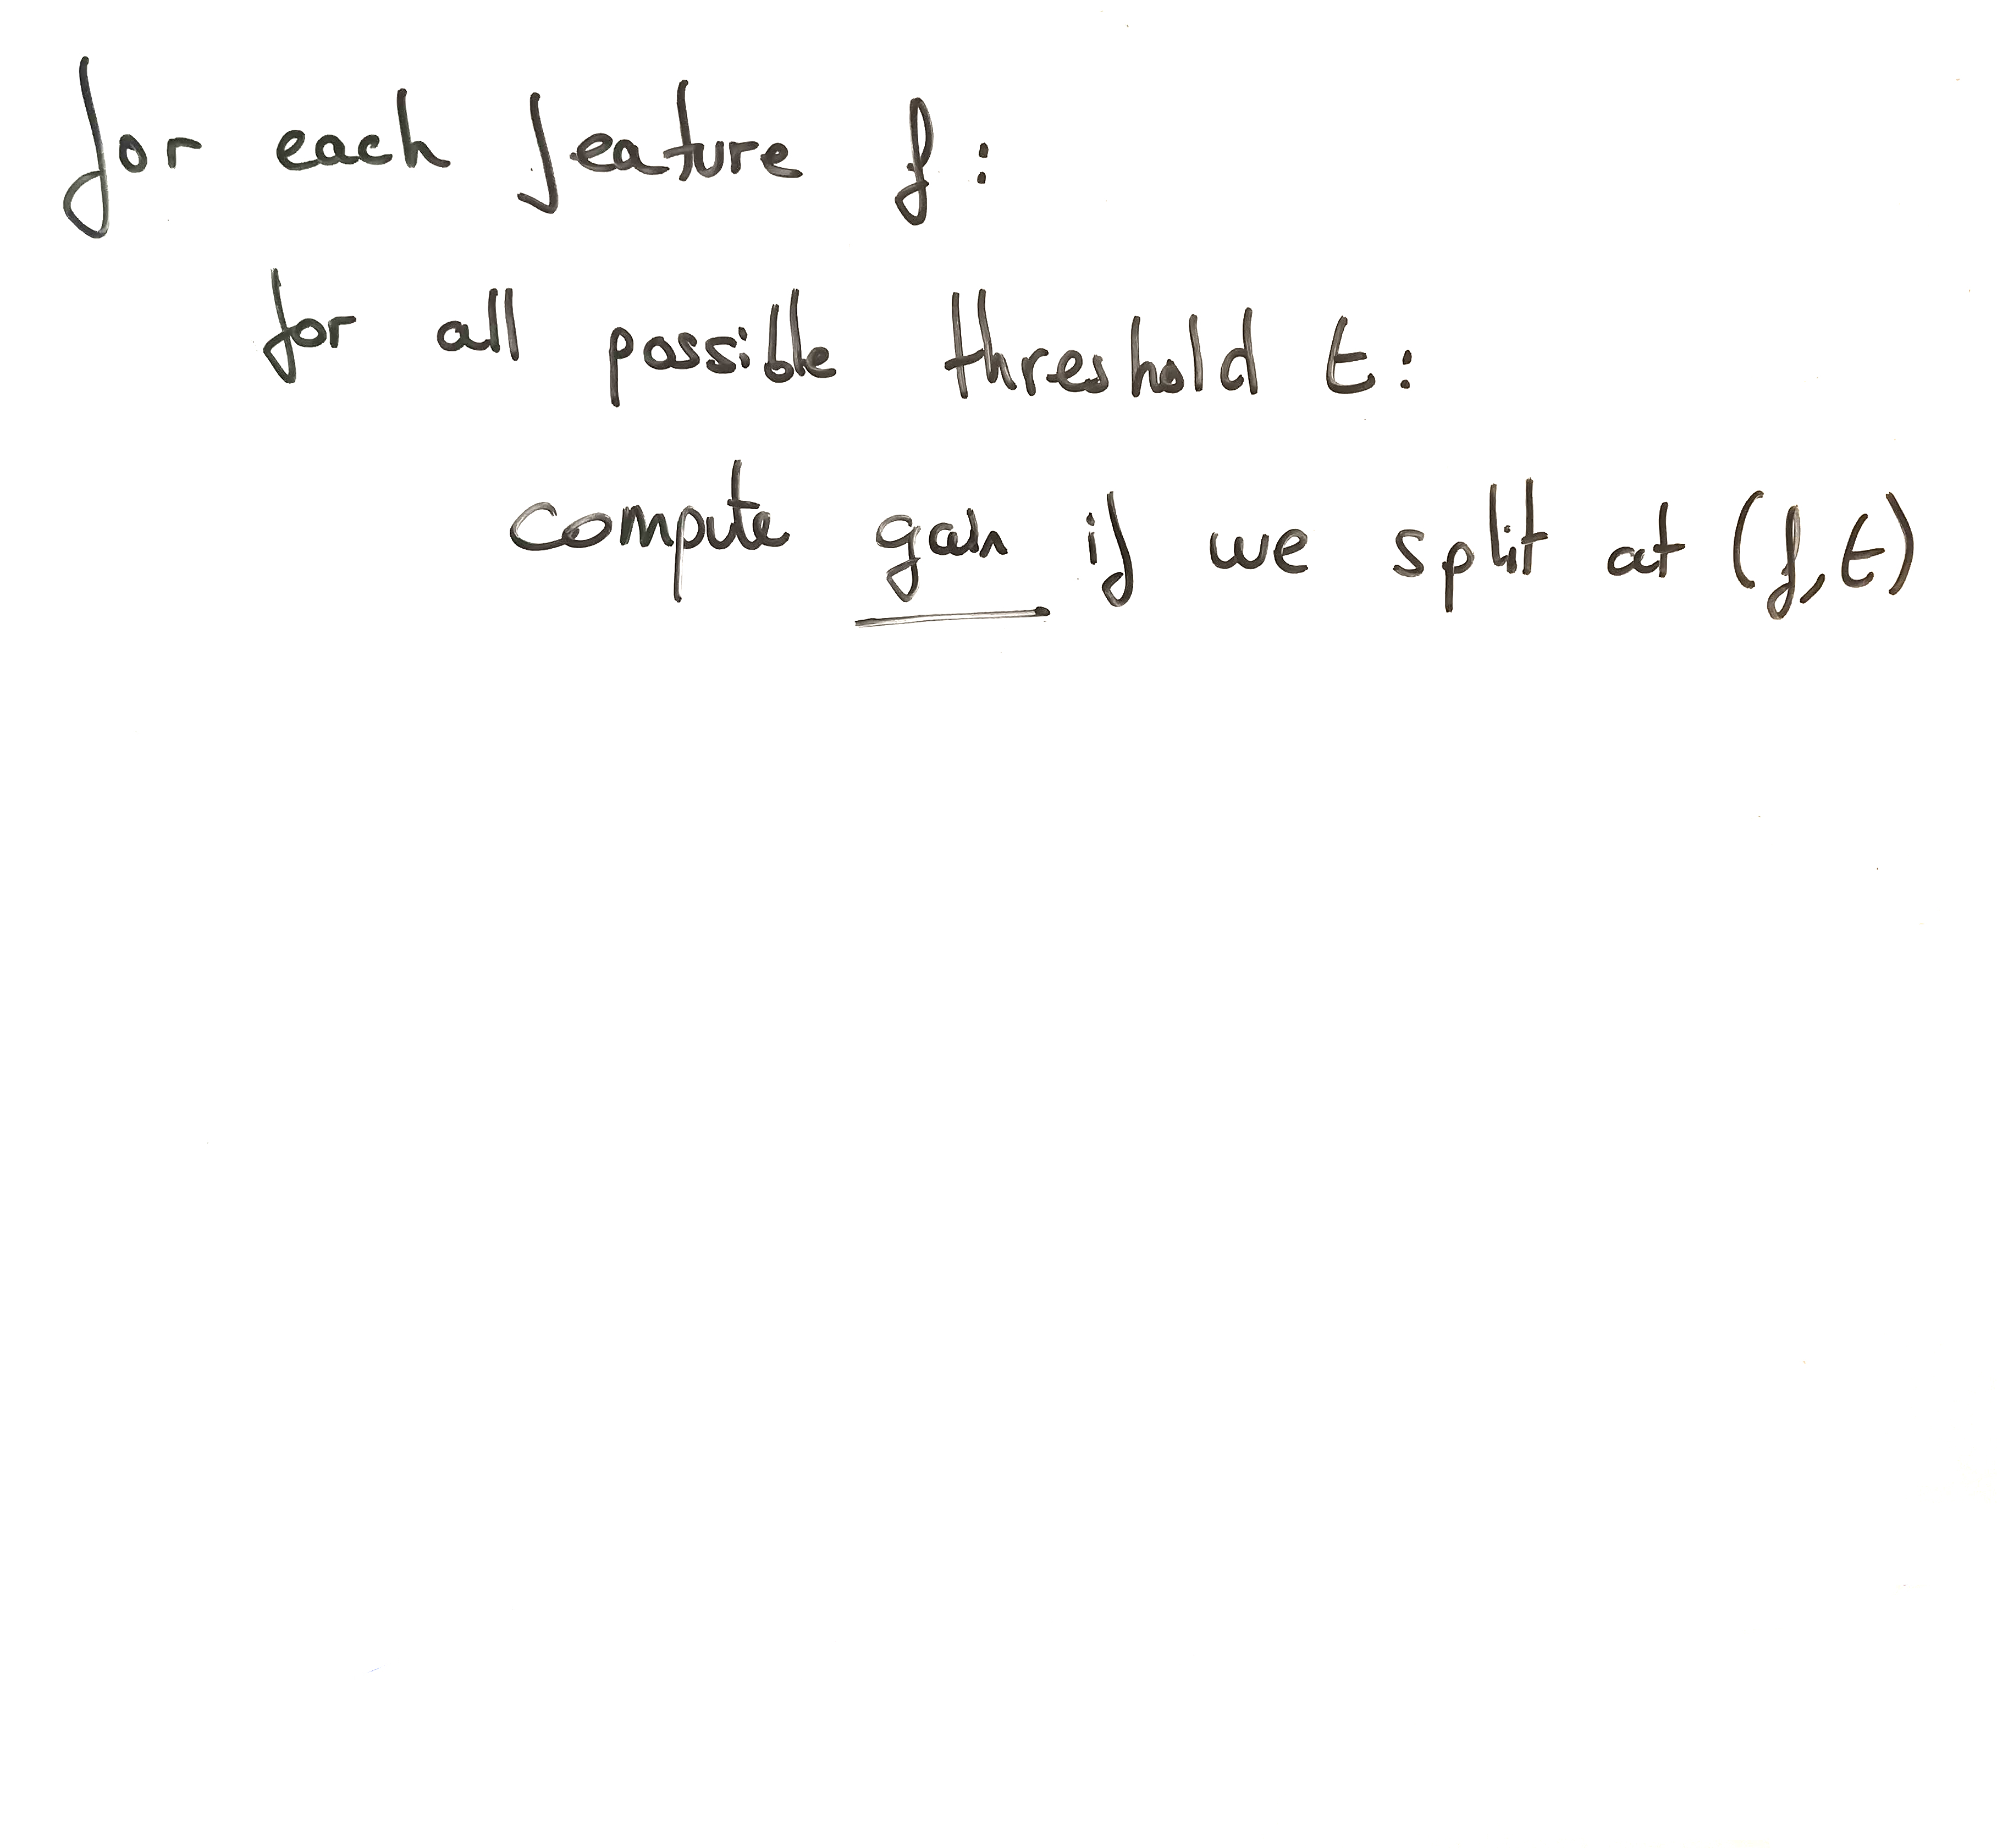 for each feature f:
for all possible threshold t:
compute gain if we split at (f, t)